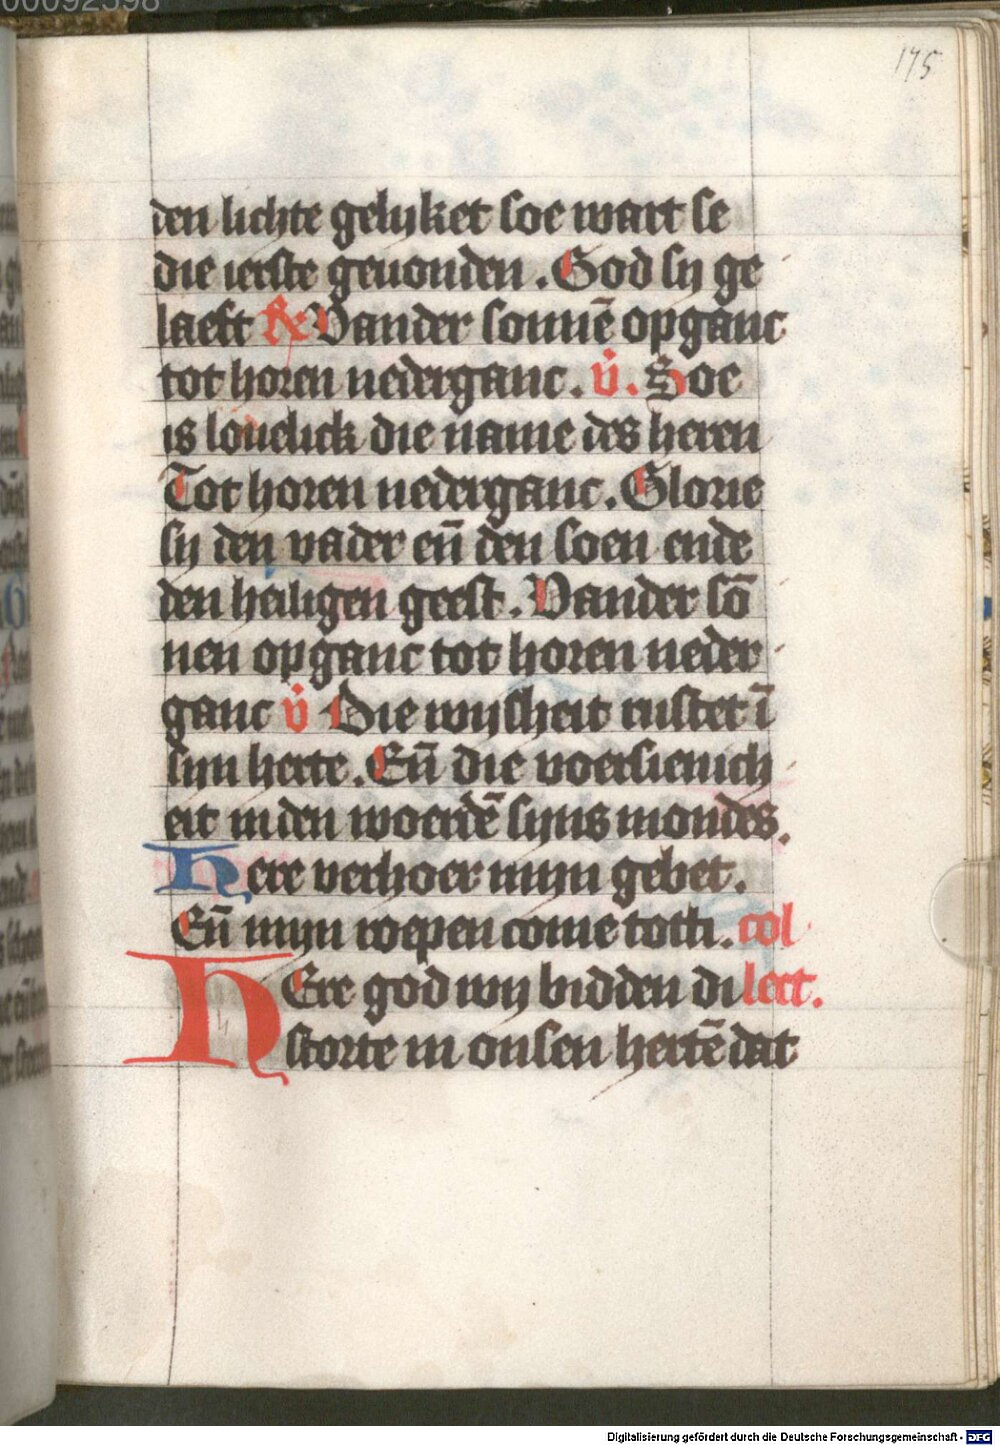 00092598
175
den lichte gelyket soe wart se
die ierste geuonden. God sy ge
laeft ℟ Vander sonnē opganc
tot horen nederganc. v̇. Soe
is louelick die name des heren
Tot horen nederganc. Glorie
sy den vader en̄ den soen ende
den heiligen geest. Vander sō
nen opganc tot horen neder
ganc v̇ Die wysheit rustet ī
syn herte. En̄ die voersienich
eit in den woerdē syns mondes.
Here verhoer myn gebet.
En̄ myn roepen come toth. col
HEre god wy bidden di lect.
storte in onsen hertē dat
Digitalisierung gefördert durch die Deutsche Forschungsgemeinschaft - DFG